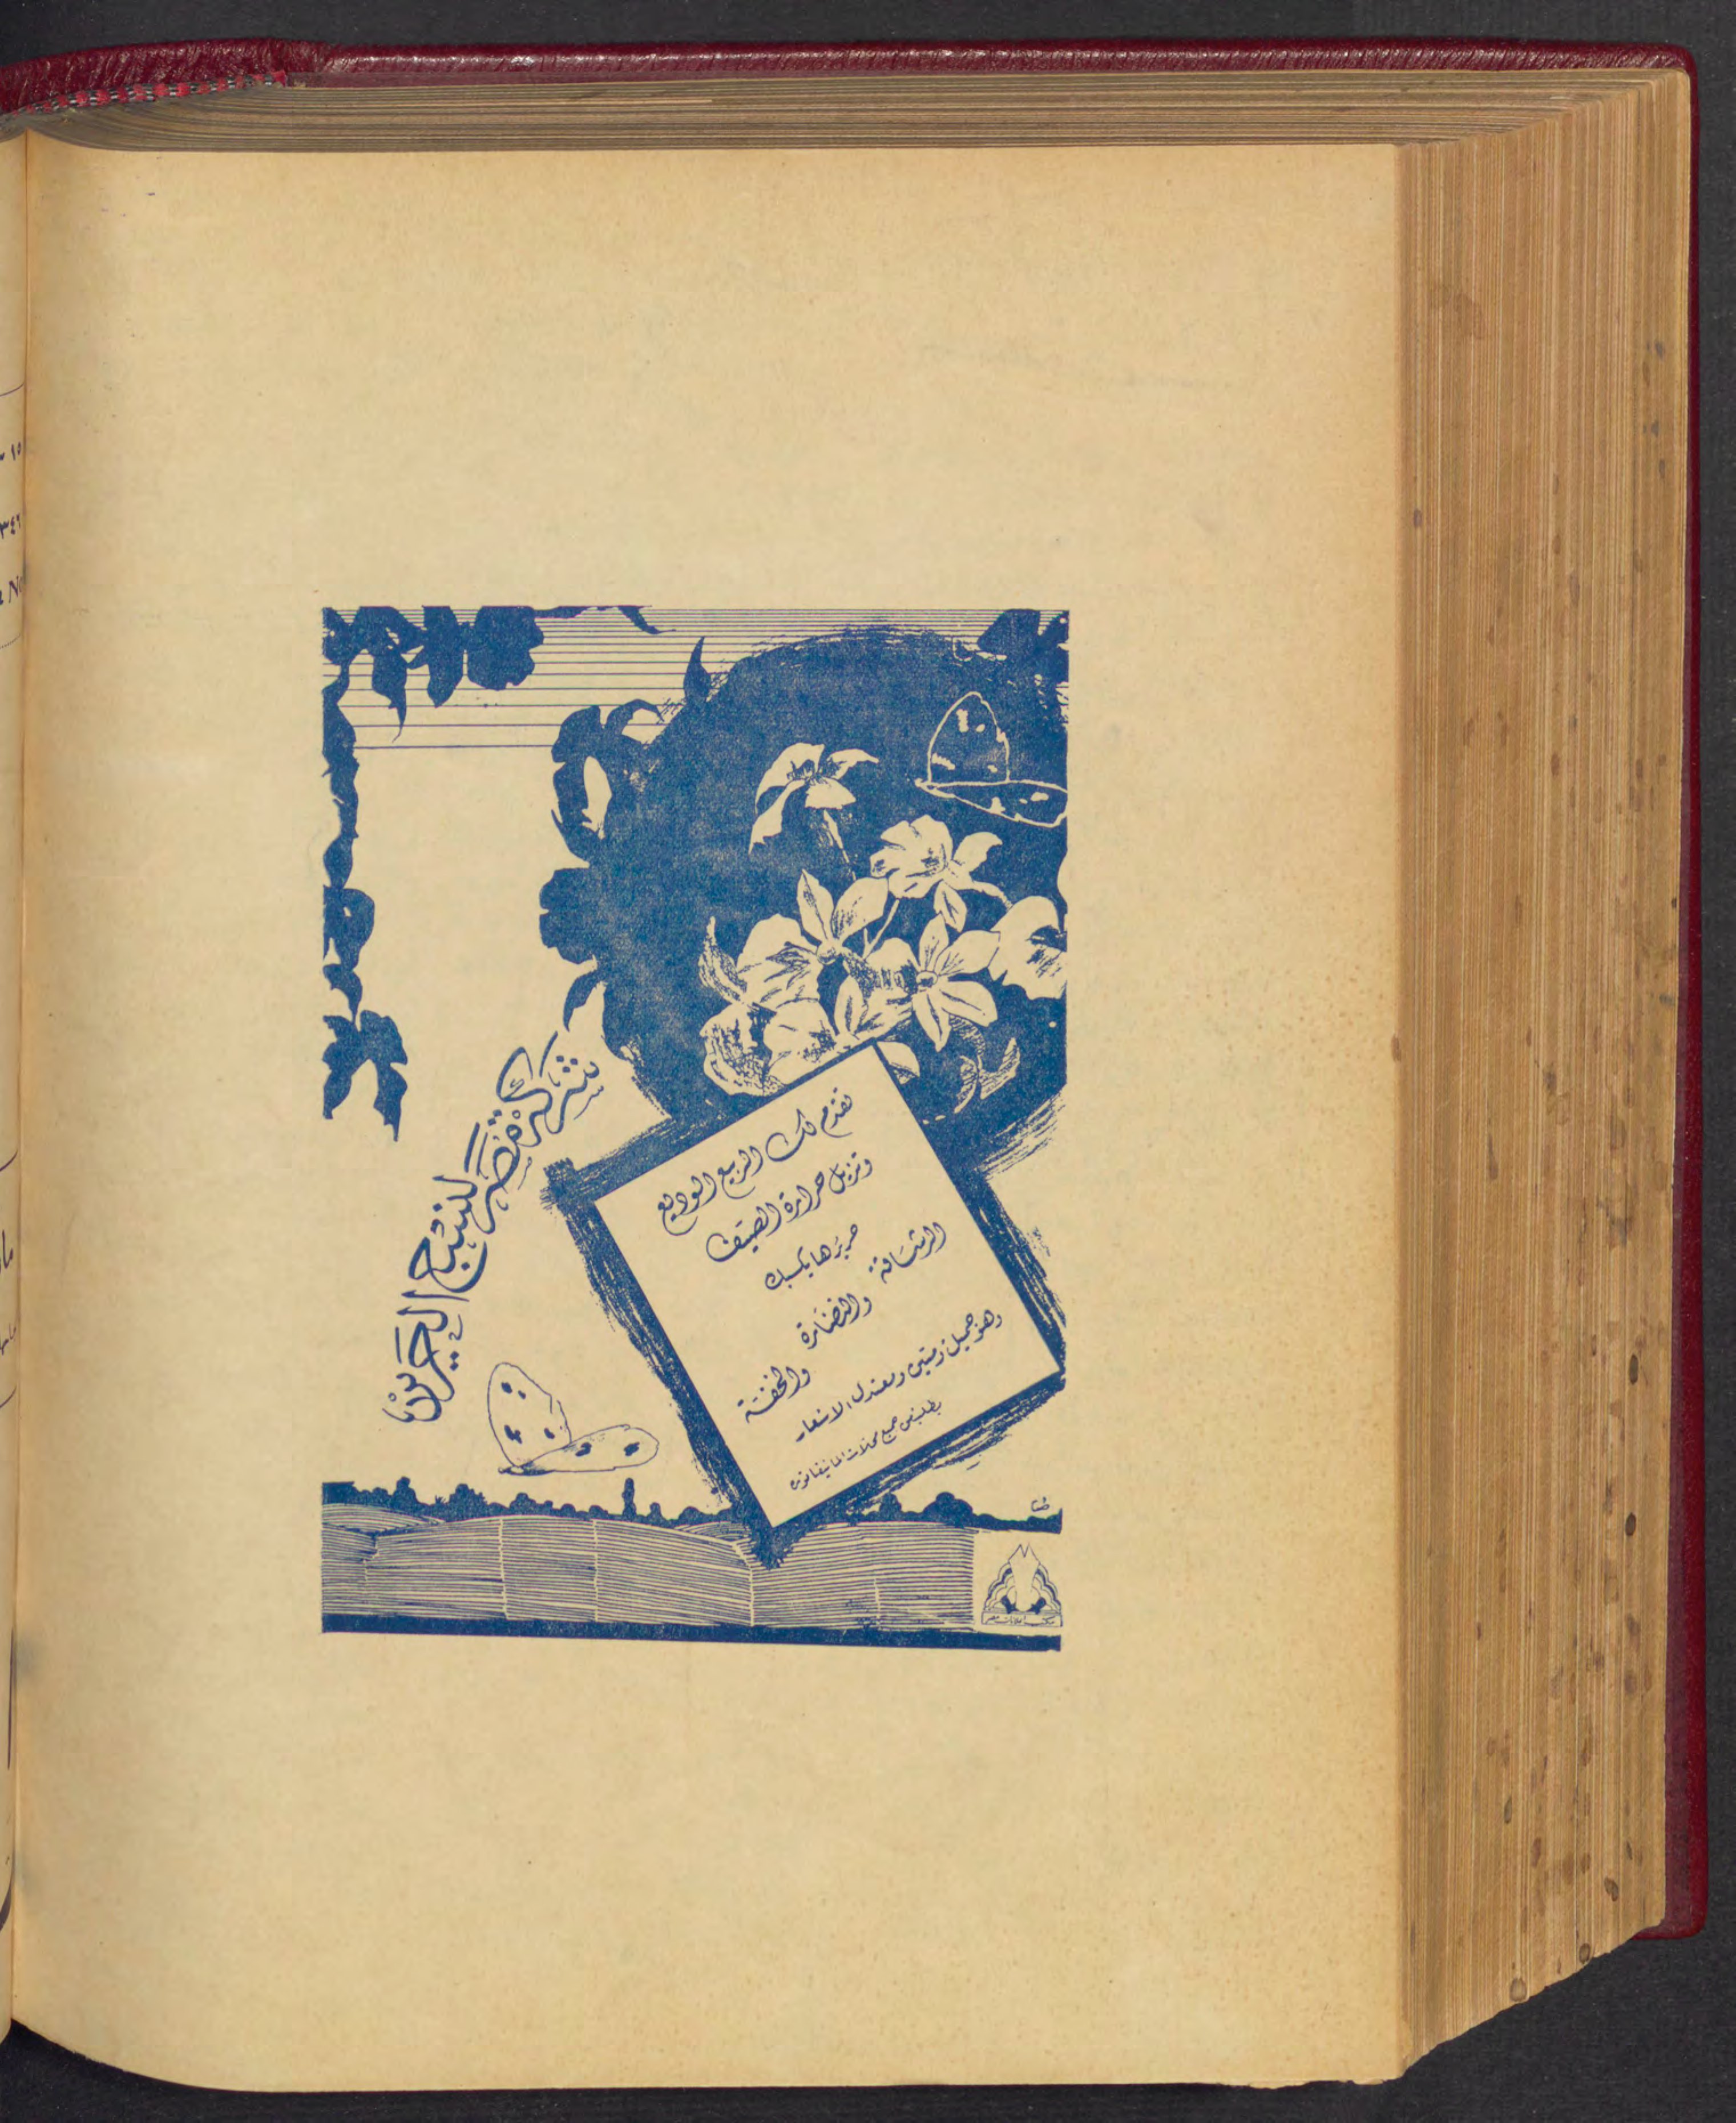 شركة مصر لنسج الحرير
تقدم لك الربيع الوديع
وتزيل حرارة الصيف
حريرها يكسبك
الرشاقة
والنضارة
والخفة
وهو جميل ومتين ومعتدل الاسعار
يطلب من جميع محلات المانيفاتورة
مكتب اعلانات مصر
١٥
٣٤٦